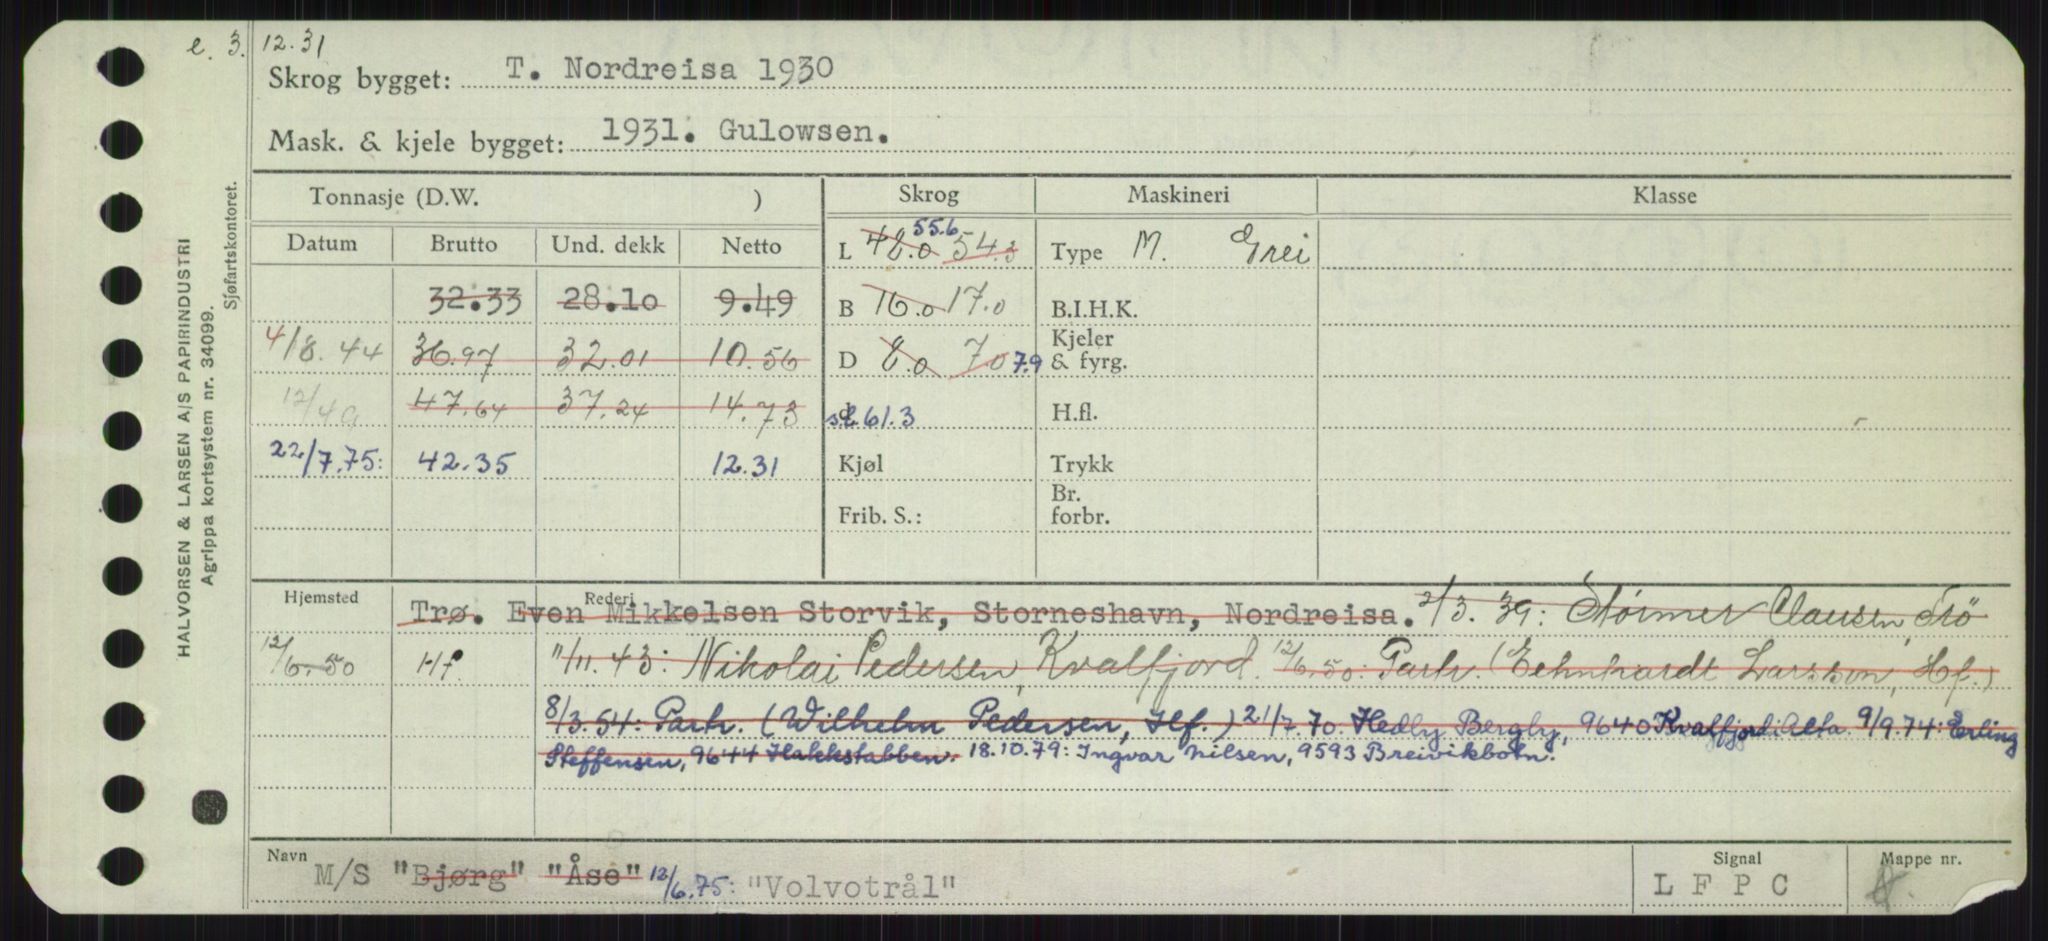 e. 3. 12.31
Skrog bygget: T. Nordreisa 1930
Mask. & kjele bygget: 1931. Gulowsen.
HALVORSEN & LARSEN A/S PAPIRINDUSTRI
Agrippa kortsystem nr. 34099.
Sjøfartskontoret.
Tonnasje (D.W. ) Skrog Maskineri Klasse
Datum Brutto Und. dekk Netto
L 48.0 54.3 55.6 Type M. Grei
32.33 28.10 9.49 B 16.0 17.0 B.I.H.K.
4/8.44 36.97 32.01 10.56 D 8.0 7.0 7.9 Kjeler & fyrg.
12/49 47.64 37.24 14.73 d s.l 61.3 H.fl.
22/7.75: 42.35 12.31 Kjøl Trykk
Frib. S.: Br. forbr.
Hjemsted Rederi
Trø. Even Mikkelsen Storvik, Storneshavn, Nordreisa. 2/3.39: Størmer Clausen, Trö
12/6.50 Hf. 11/11.43: Nikolai Pedersen, Kvalfjord. 12/6.50: Partr. (Larsson, Hf.)
8/3.54: Partr. (Wilhelm Pedersen, Hf.) 21/7.70. Hedly Bergby, 9640 Kvalfjord i Alta. 9/9.74: Erling
Steffensen, 9644 Hakkstabben. 18.10.79: Ingvar Nilsen, 9593 Breivikbotn.
Navn Signal Mappe nr.
M/S "Bjørg" "Åse" 12/6.75: "Volvotrål" L F P C